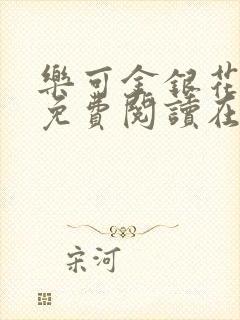 樂可金銀花
免費閱讀在
宋河